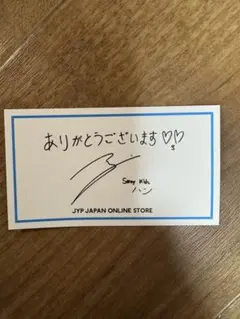 ありがとうございます♡♡
Stray Kids
ハン
JYP JAPAN ONLINE STORE